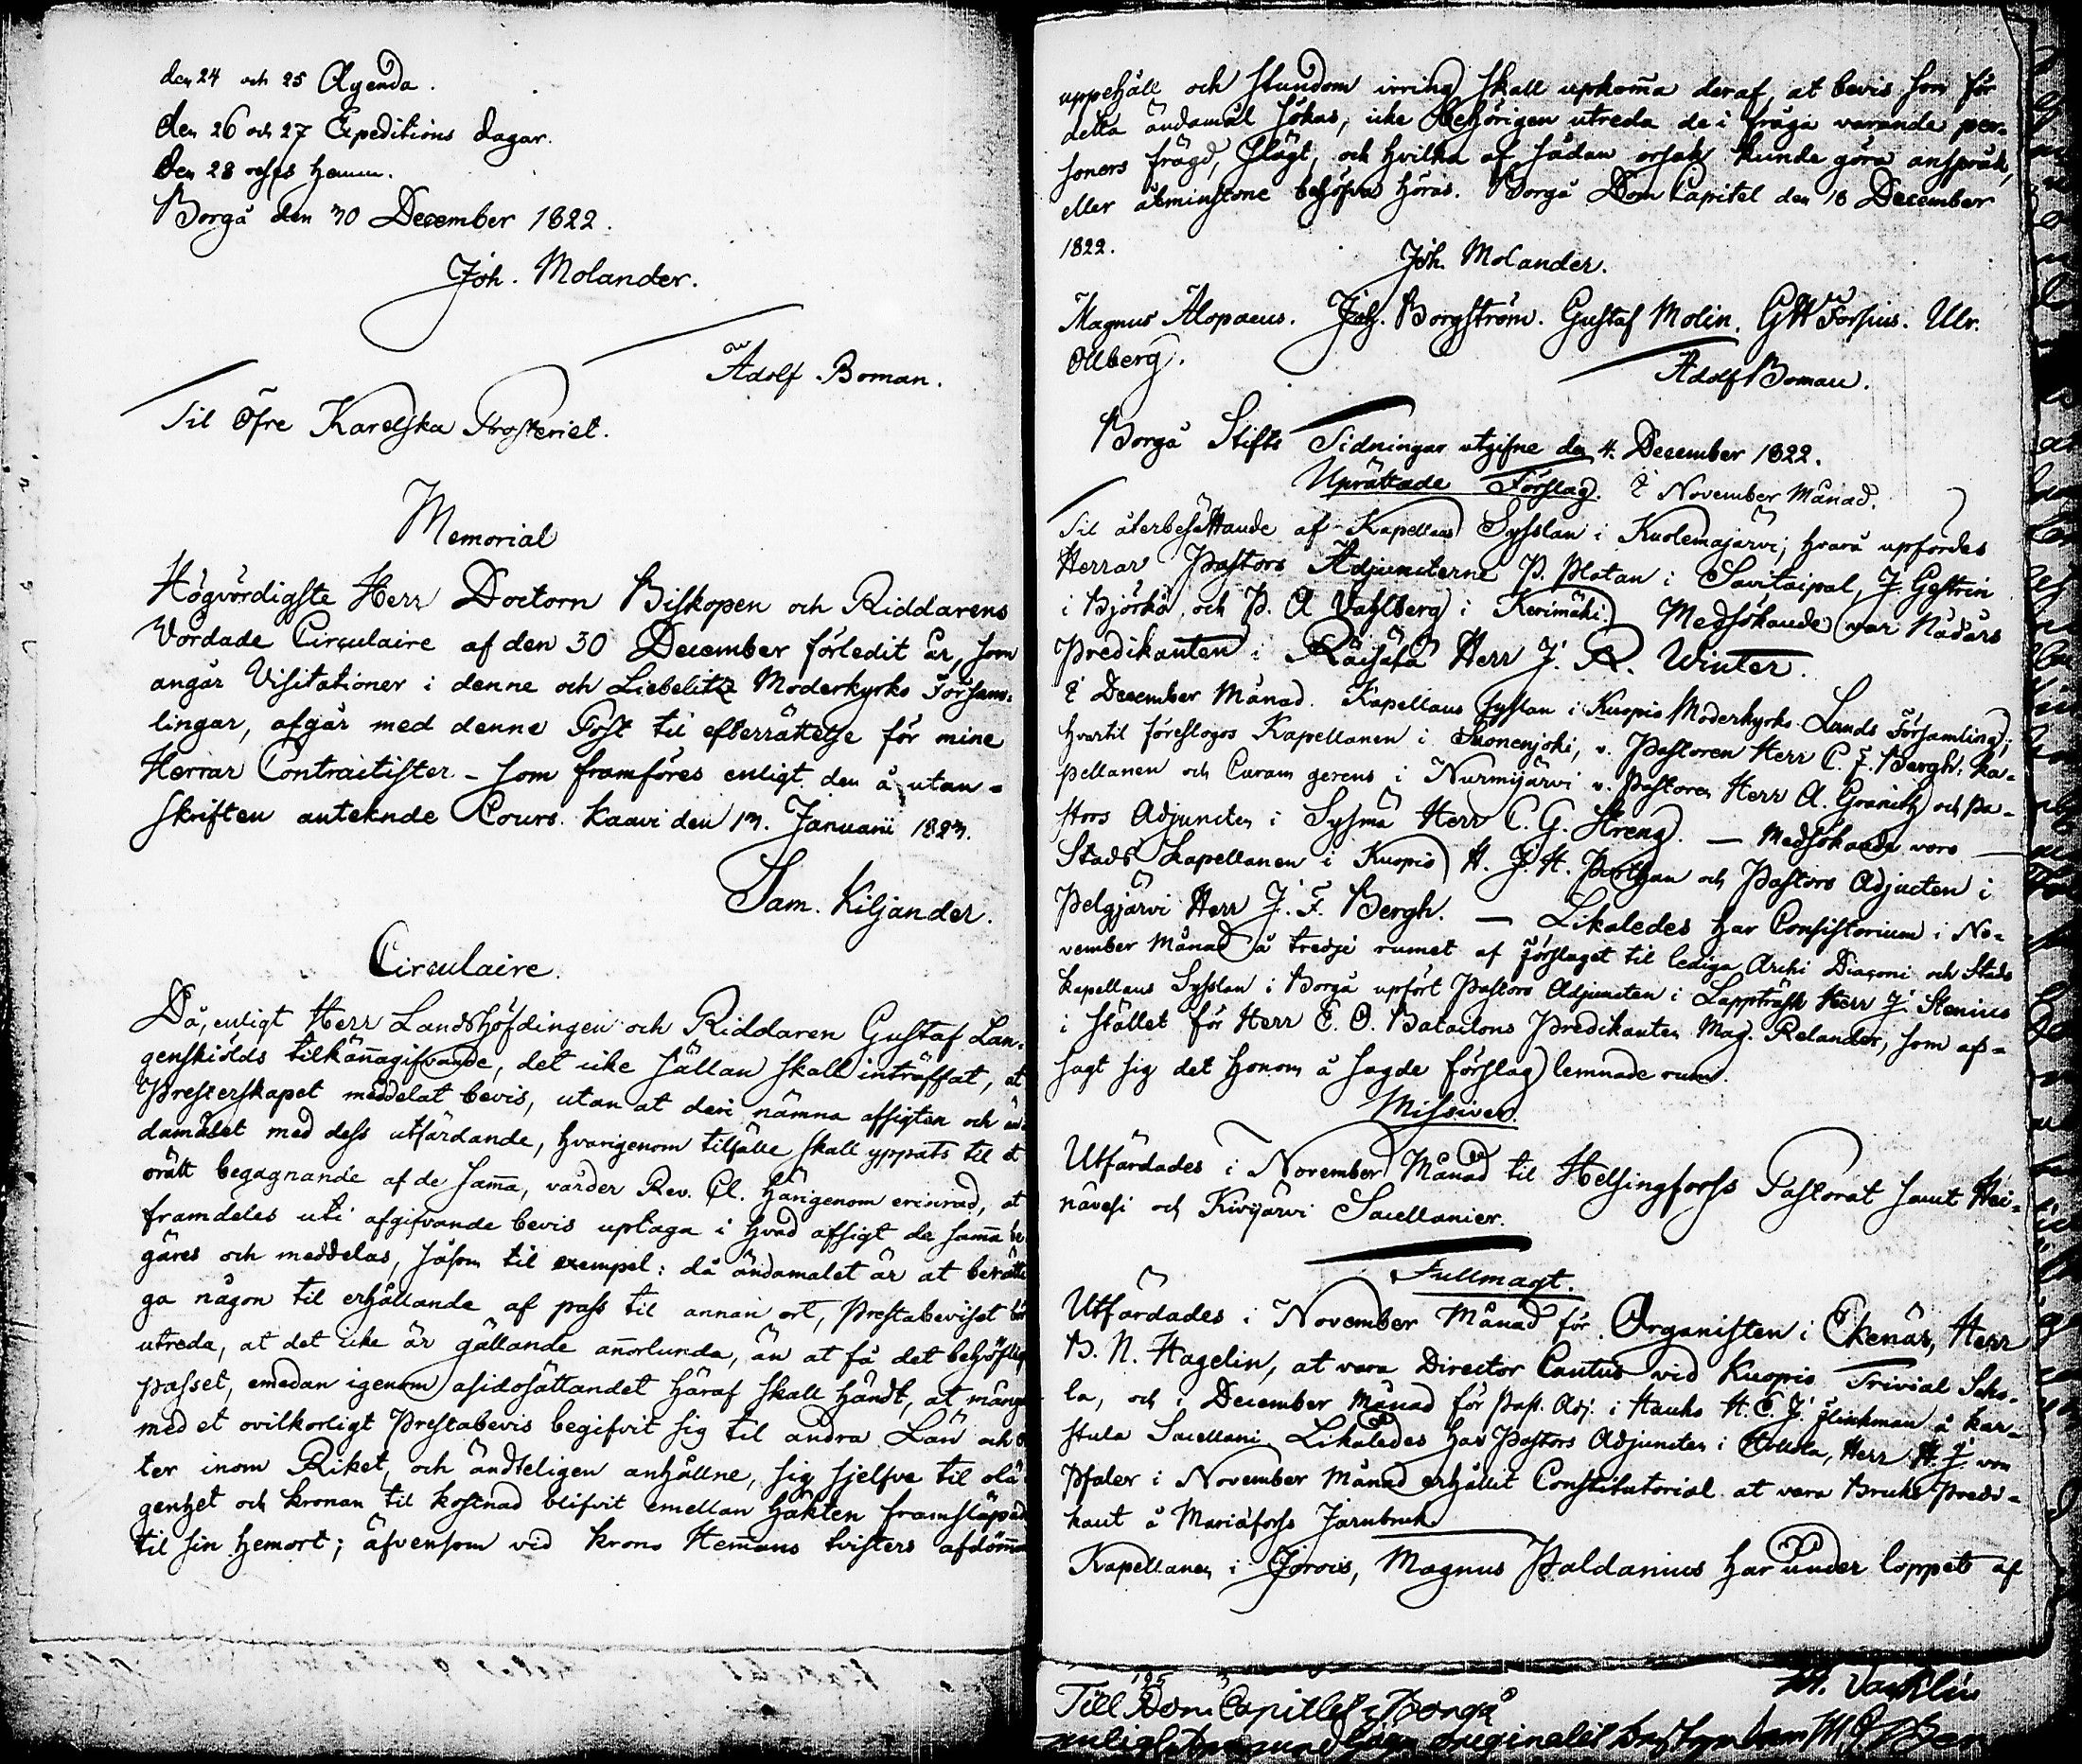 den 24 och 25 Agenda.
den 26 och 27 Expeditions dagar.
den 28 hemm.
Borgå den 30 December 1822.
Joh. Molander.
Adolf Boman.
Til Öfre Karelska Prosteriet.
Memorial
Högvördigste Herr Doctorn Biskopen och Riddarens
Vördade Circulaire af den 30 December förledit år, som
angår Visitationer i denne och Liebelitz Moderkyrko Försam-
lingar, afgår med denne Post til efterrättelse för mine
Herrar Contractister – som framföres enligt den å utan-
skriften anteknde Cours. Kaavi den 13. Januarii 1823.
Sam. Kiljander.
Circulaire.
Då, enligt Herr Landshöfdingen och Riddaren Gustaf Lan-
genskiölds tilkännagifvande, det icke sällan skall inträffat, at
Presterskapet meddelat bevis, utan at deri nämna afsigten och än-
damålet med dess utfärdande, hvarigenom tilfälle skall yppats til et
orätt begagnande af de samma, varder Rev. Cl. härigenom erinrad, at
framdeles uti afgifvande bevis uptaga i hvad afsigt de samma be-
gäres och meddelas, såsom til exempel: då ändamålet är at berätti-
ga någon til erhållande af pass til annan ort, Prestabeviset bör
utreda, at det icke är gällande annorlunda, än at få det behöflige
passet, emedan igenom asidosättandet häraf skall händt, at mången
med et ovilkorligt Prestabevis begifvit sig til andra Län och or-
ter inom Riket, och ändteligen anhållne, sig sjelfve til olä-
genhet och kronan til kostnad blifvit emellan häkten framsläpade
til sin hemort; äfvensom vid krono Hemmans tvisters afdömma
uppehåll och stundom irring skall upkomma deraf, at bevis som för
detta ändamål sökas, icke behörigen utreda de i fråga varande per-
soners frägd, slägt, och hvilka af sådan orsak kunde göra anspråk,
eller åtminstone behöfva höras. Borgå Dom Capitel den 18 December
1822.
Joh. Molander.
Magnus Alopaeus. Joh. Borgström. Gustaf Molin. GW Forsius. Ulr.
Ollberg.
Adolf Boman.
Borgå Stifts Tidningar utgifne den 4. December 1822.
Uprättade Förslag. I November Månad.
Til återbesättande af Kapellans Sysslan i Kuolemajärvi; hvarå upfördes
Herrar Pastors Adjuncterne P. Platan i Savitaipal, J. Gestrin
i Björkö, och P. A Vahlberg i Kerimäki. Medsökande var Nådårs
Predikanten i Räisälä Herr J. R. Winter.
I December Månad. Kapellans Sysslan i Kuopio Moderkyrko Lands Församling;
hvartil föreslogos Kapellanen i Suonenjoki, v. Pastoren Herr C. J. Bergh: Ka-
pellanen och Curam gerens i Nurmijärvi v. Pastoren Herr A. Granith och Pa-
stors Adjuncten i Sysmä Herr C. G. Streng. – Medsökande voro
Stads Kapellanen i Kuopio H. J. H. Porthan och Pastors Adjucten i
Pelgjärvi Herr J. F. Bergh. – Likaledes har Consistorium i No-
vember Månad å tredje rumet af förslaget til lediga Archi Diaconi och Stads
kapellans Sysslan i Borgå upfört Pastors Adjuncten i Lappträsk Herr J. Stenius
i stället för Herr E. O. Batailons Predikanten Mag. Relander, som af-
sagt sig det honom å sagde förslag lemnade rum.
Missiver.
Utfärdades i November Månad til Helsingforss Pastorat samt Hei-
nävesi och Kivijärvi Sacellanier.
Fullmagt.
Utfärdades i November Månad för Organisten i Ekenäs, Herr
B. N. Hagelin, at vara Director Cantus vid Kuopio Trivial Scho-
la, och i December Månad för Past. Adj. i Hauho H. C. J. Flinkman å Kar-
stula Sacellani. Likaledes har Pastors Adjuncten i Hollola, Herr H. J. von
Pfaler i November Månad erhållit Constitutorial at vara Bruks Predi-
kant å Mariæforss Jarnbruk.
Kapellanen i Jorois, Magnus Paldanius har under loppet af
Till Dom Capitlet i Borgå